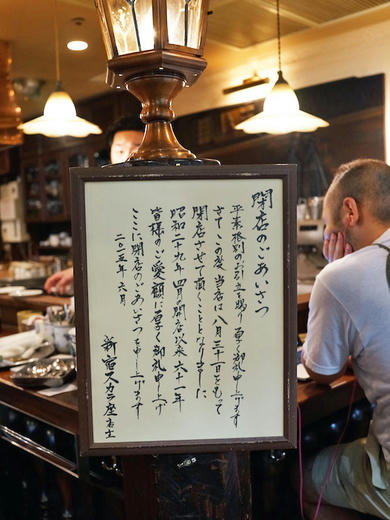 閉店のごあいさつ
平素格別のお引立を賜り厚く御礼申し上げます
さてこの度当店は八月三十一日をもって
閉店させて頂くこととなりました
昭和二十九年四月開店以来六十一年
皆様のご愛顧に厚く御礼申し上げ
ここに閉店のごあいさつを申し上げます
二〇一五年六月
新宿スカラ座店主